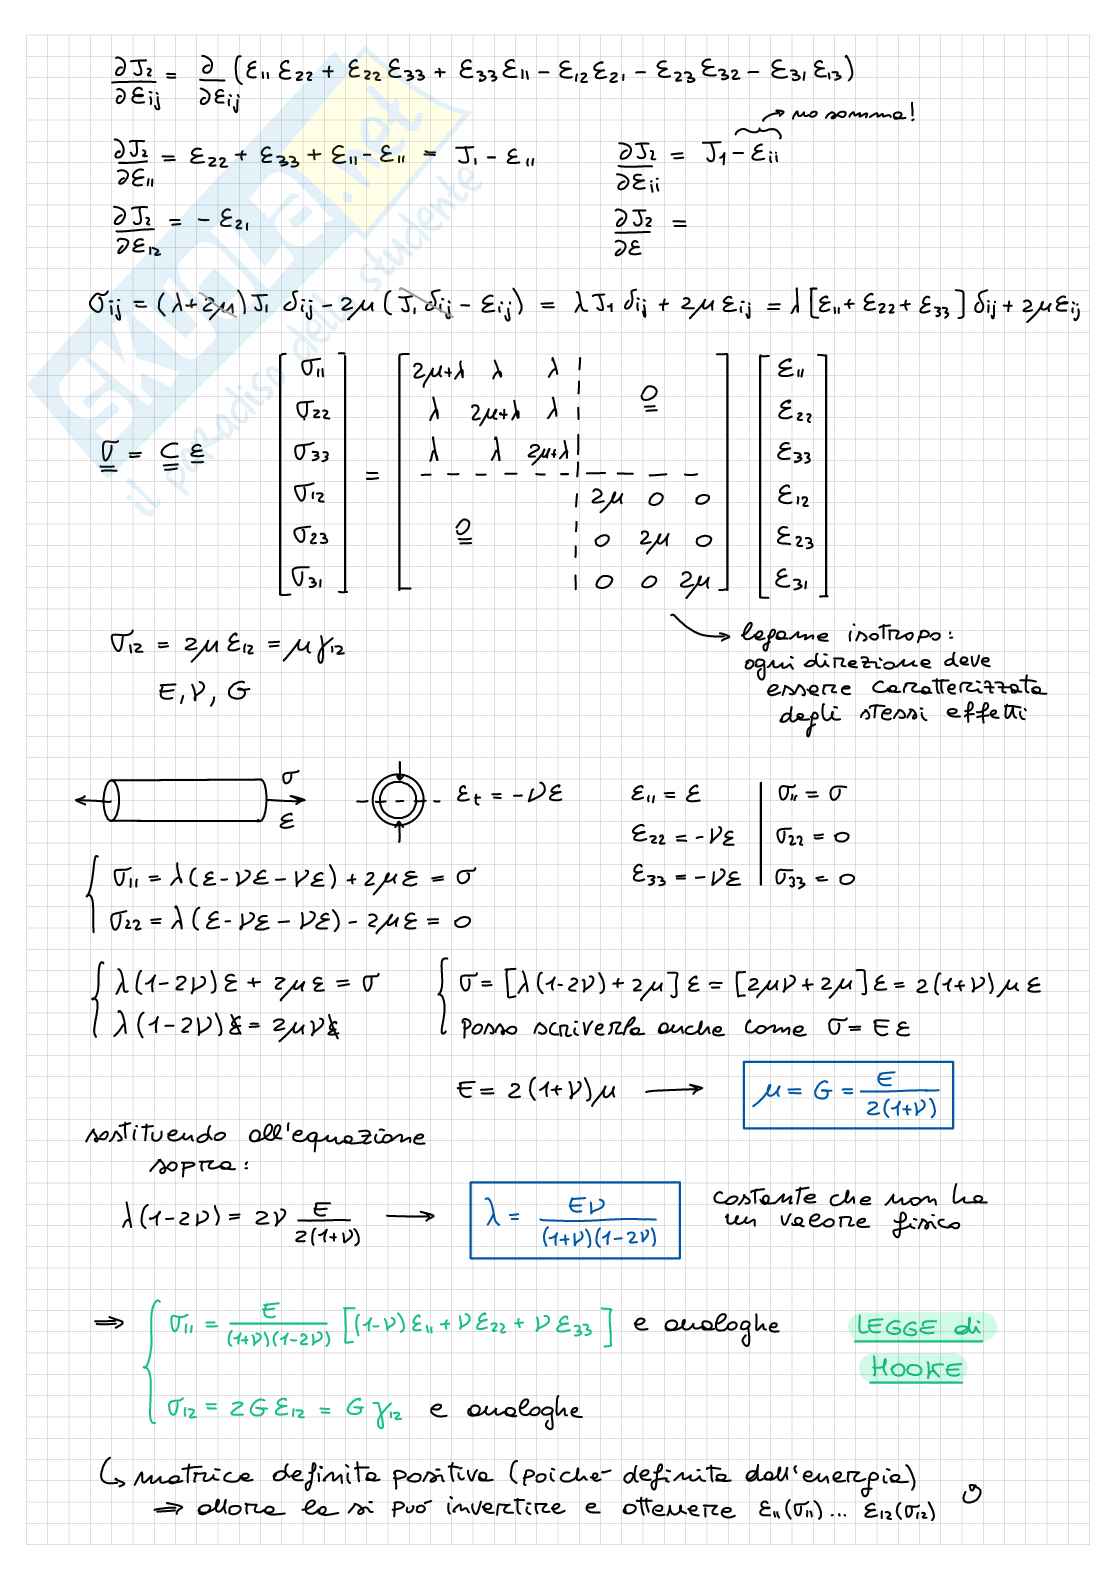 ∂J₂/∂εij = ∂/∂εij (ε₁₁ε₂₂ + ε₂₂ε₃₃ + ε₃₃ε₁₁ − ε₁₂ε₂₁ − ε₂₃ε₃₂ − ε₃₁ε₁₃)
→ no somma!
∂J₂/∂ε₁₁ = ε₂₂ + ε₃₃ + ε₁₁ − ε₁₁ = J₁ − ε₁₁
∂J₂/∂εii = J₁ − εii
∂J₂/∂ε₁₂ = − ε₂₁
∂J₂/∂ε =
σij = (λ+2μ)J₁ δij − 2μ(J₁δij − εij) = λJ₁δij + 2μεij = λ[ε₁₁ + ε₂₂ + ε₃₃]δij + 2μεij
σ = C ε
[σ₁₁ σ₂₂ σ₃₃ σ₁₂ σ₂₃ σ₃₁] =
2μ+λ λ λ 0
λ 2μ+λ λ
λ λ 2μ+λ
2μ 0 0
0 0 2μ 0
0 0 2μ
[ε₁₁ ε₂₂ ε₃₃ ε₁₂ ε₂₃ ε₃₁]
σ₁₂ = 2με₁₂ = μγ₁₂
E, ν, G
→ legame isotropo:
ogni direzione deve
essere caratterizzata
degli stessi effetti
σ
ε
εt = −νε
ε₁₁ = ε | σ₁₁ = σ
ε₂₂ = −νε | σ₂₂ = 0
ε₃₃ = −νε | σ₃₃ = 0
σ₁₁ = λ(ε − νε − νε) + 2με = σ
σ₂₂ = λ(ε − νε − νε) − 2με = 0
λ(1−2ν)ε + 2με = σ
λ(1−2ν)ε = 2μνε
σ = [λ(1−2ν) + 2μ]ε = [2μν + 2μ]ε = 2(1+ν)με
posso scriverla anche come σ = Eε
E = 2(1+ν)μ → μ = G = E/2(1+ν)
sostituendo all'equazione
sopra:
λ(1−2ν) = 2ν E/2(1+ν) → λ = Eν/(1+ν)(1−2ν)
costante che non ha
un valore fisico
⇒ σ₁₁ = E/(1+ν)(1−2ν) [(1−ν)ε₁₁ + νε₂₂ + νε₃₃] e analoghe
σ₁₂ = 2Gε₁₂ = Gγ₁₂ e analoghe
LEGGE di
HOOKE
↳ matrice definita positiva (poiché definita dall'energia)
⇒ allora la si può invertire e ottenere ε₁₁(σ₁₁)... ε₁₂(σ₁₂)
SKUOLA.net
il paradiso dello studente